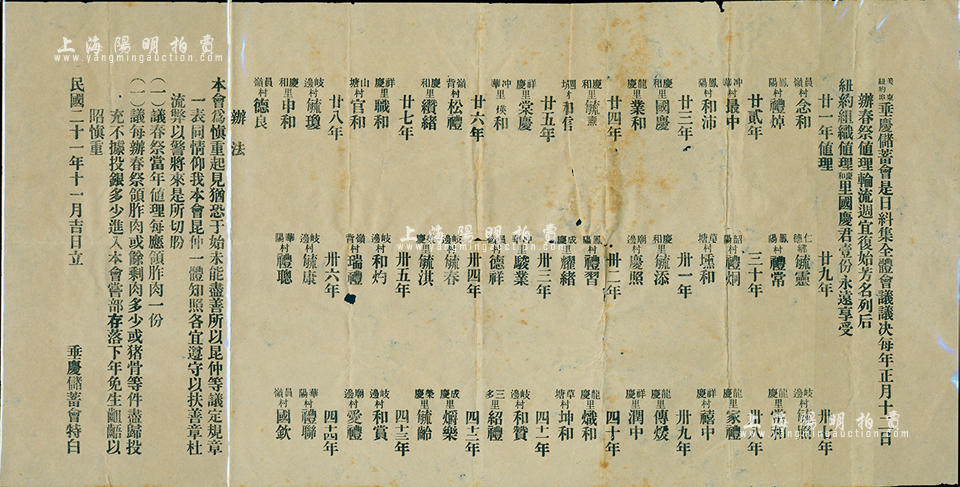 美東紐約埠垂慶儲蓄會是日糾集全體會議議决每年正月十二日
辦春祭值理輪流週宜復始芳名列后
紐約組織值理慶和里國慶君壹份永遠享受
廿一年值理
員嶺村念和
鳳陽村禮焯
廿貳年
冲華村最中
鳳陽村和沛
廿三年
慶和里國慶
龍慶里業和
廿四年
慶和里毓憲
和信
廿五年
祥慶里棠慶
冲華里瑛和
廿六年
嶺背村松禮
慶和里纘緒
廿七年
祥慶里職和
山塘村官和
廿八年
岐邊村毓瓊
慶和里申和
員嶺村德良
廿九年
仁德毓靈
鳳陽村禮常
三十年
韶陽村禮炯
塘村壎和
卅一年
慶和里毓添
廟邊村慶照
卅二年
鳳陽村禮習
成慶里耀緒
卅三年
駿業
德祥
卅四年
岐邊村毓春
慶里毓淇
卅五年
岐邊村和灼
嶺背村瑞禮
卅六年
岐邊村毓康
華陽村禮聰
卅七年
岐邊村
卅八年
龍慶里家禮
祥慶村禧中
卅九年
龍慶里傳焌
祥慶里潤中
四十年
龍慶里熾和
草塘村坤和
四十一年
岐邊村和贊
三多里紹禮
四十二年
成慶里爝樂
榮慶里毓齡
四十三年
岐邊村和賞
廟邊村愛禮
四十四年
華陽村禮聯
員嶺村國欽
辦法
本會爲愼重起見猶恐于始未能盡善所以昆仲等議定規章
一表同情仰我本會昆仲一體知照各宜遵守以扶善章杜
流弊以警將來是所切盼
(一)議春祭當年值理每應領胙肉一份
(一)議每辦春祭領胙肉或餘剩肉多少或猪骨等件盡歸投
充不據投銀多少進入本會嘗部存落下年免生齟齬以
昭愼重
民國二十一年十一月吉日立
垂慶儲蓄會特白
上海陽明拍賣
www.yangmingauction.com
上海陽明拍賣
www.yangmingauction.com